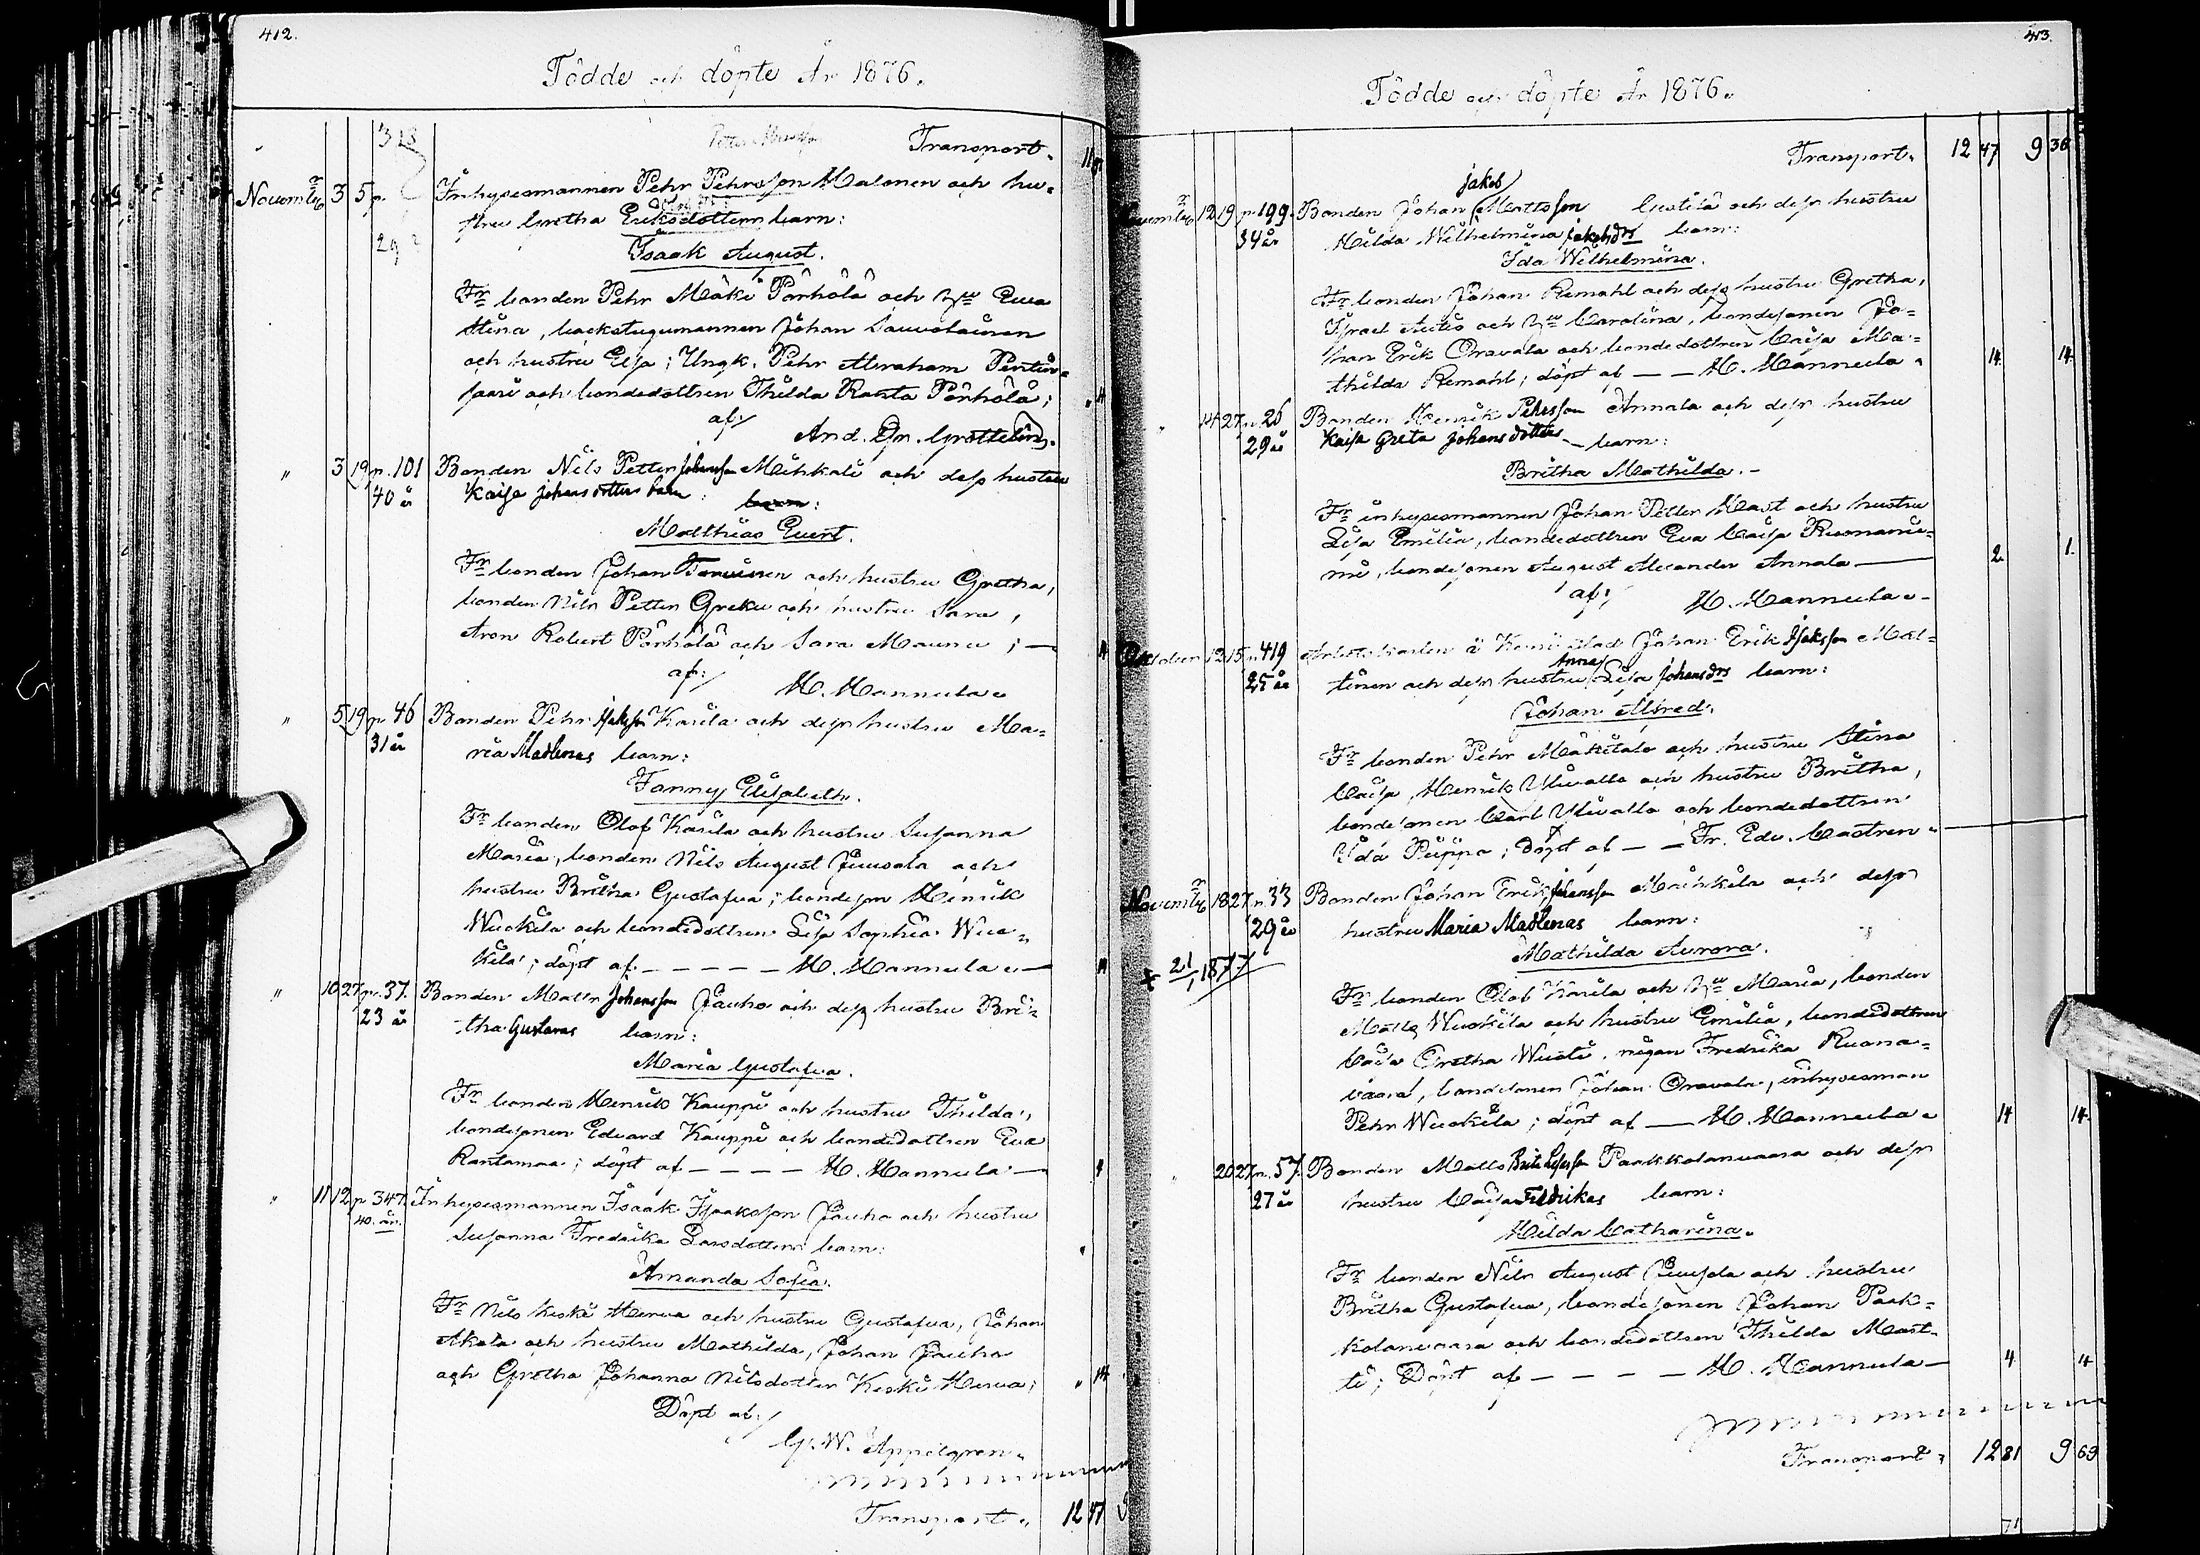 412.
Födde och döpte År 1876.
318
Transport.
Novemb 3 5 p. Inhysesmannen Pehr Pehrsson Halonen och hu=
29 stru Gretha Eriksdotters barn:
Isaak August.
Fr bonden Pehr Mäki Pörhölä och hu Eva
Stina, backstugumannen Johan Sauvolainen
och hustru Elsa; Ungk. Pehr Abraham
och bondedottren Thilda Ranta Pörhölä;
af/ And. Joh.
" 3 19 p. 101 Bonden Nils Petter Johansson Mihkali och dess hustru
40 år Kaisa Johansdotters barn:
Matthias Evert.
Fr bonden Johan och hustru Gretha,
bonden Nils Petter Greku och hustru Sara,
Aron Robert Pörhölä och Sara Maunu;
af:/ H. Hannula.
" 5 19 p. 46 Bonden Pehr Isaksson Karila och dess hustru Ma=
31 år ria Madlenas barn:
Fanny Elisabeth.
Fr bonden Olof Karila och hustru Susanna
Maria, bonden Nils August Juusola och
hustru Britha Gustafva; bondeson Henrik
Wuokila och bondedottren Lisa Sophia Wuo=
kila; döpt af — — — — — H. Hannula.
" 10 27 p. 37. Bonden Matts Johansson Jauho och dess hustru Bri=
23 år tha Gustavas barn:
Maria Gustafva.
Fr bonden Henrik Kauppi och hustru Thilda,
bondesonen Edvard Kauppi och bondedottren Eva
Rantamaa; döpt af — — — — H. Hannula
" 11 12 p 347. Inhysesmannen Isaak Isaaksson Jauho och hustru
40. år. Susanna Fredrika Larsdotters barn:
Amanda Sofia.
Fr Nils Keski Herva och hustru Gustafva, Johan
Akola och hustru Mathilda, Johan Jauho
och Gretha Johanna Nilsdotter Keski Herva;
Döpt af:/
G. W. Appelgren.
Transport. 12 47
413.
Födde och döpte År 1876.
Transport. 12 47 9 36
Jakob
Novemb 12 19 p. 199. Bonden Johan Mattsson och dess hustru
34 år Hilda Wilhelmina Jakobdrs barn:
Ida Wilhelmina.
Fr bonden Johan Remahl och dess hustru Gretha,
Israel Autio och hu Carolina, bondesonen Jo=
han Erik Oravala och bondedottren Caisa Ma=
thilda Remahl; döpt af — — H. Hannula. 14 14
" 14 27 p. 26 Bonden Henrik Pehrsson Annala och dess hustru
29 år Kaisa Greta Johansdotters barn:
Britha Mathilda.
Fr inhysesmannen Johan Petter Hast och hustru
Lisa Emilia, bondedottren Eva Caisa Ruonanie=
mi, bondesonen August Alexander Annala 2 1
af:/ H. Hannula.
Oktober 12 15 p 419 Arbetskarlen i Kemi stad Johan Erik Isaksson Mat=
Anna
25 år tinen och dess hustru Lisa Johansdrs barn:
Johan Alfred.
Fr bonden Pehr Mäkitalo och hustru Stina
Caisa, Henrik Ylivalla och hustru Britha,
bondesonen Carl Ylivalla och bondedottren
Ida Piippo; döpt af — — Fr. Edv. Castren.
Novemb 18 27 p. 33 Bonden Johan Erik Johansson Maihkila och dess
29 år hustru Maria Madlenas barn:
Mathilda Aurora.
+ 21/1 1877
Fr bonden Olof Karila och hu Maria, bonden
Matts Wuokila och hustru Emilia, bondedottren
Caisa Gretha Wuoti, pigan Fredrika Ruona=
vaara, bondesonen Johan Oravala, inhysesman
Pehr Wuokila; döpt af — H. Hannula. 14 14.
" 20 27 p. 57. Bonden Matts Paakkolanvaara och dess
27 år hustru Caisa Fredrikas barn:
Hilda Catharina.
Fr bonden Nils August Juusola och hustru
Britha Gustafva, bondesonen Johan Paak=
kolanvaara och bondedottren Thilda Mart=
ti; Döpt af — — — — H. Hannula 4 4
Transport. 12 81 9 69
71